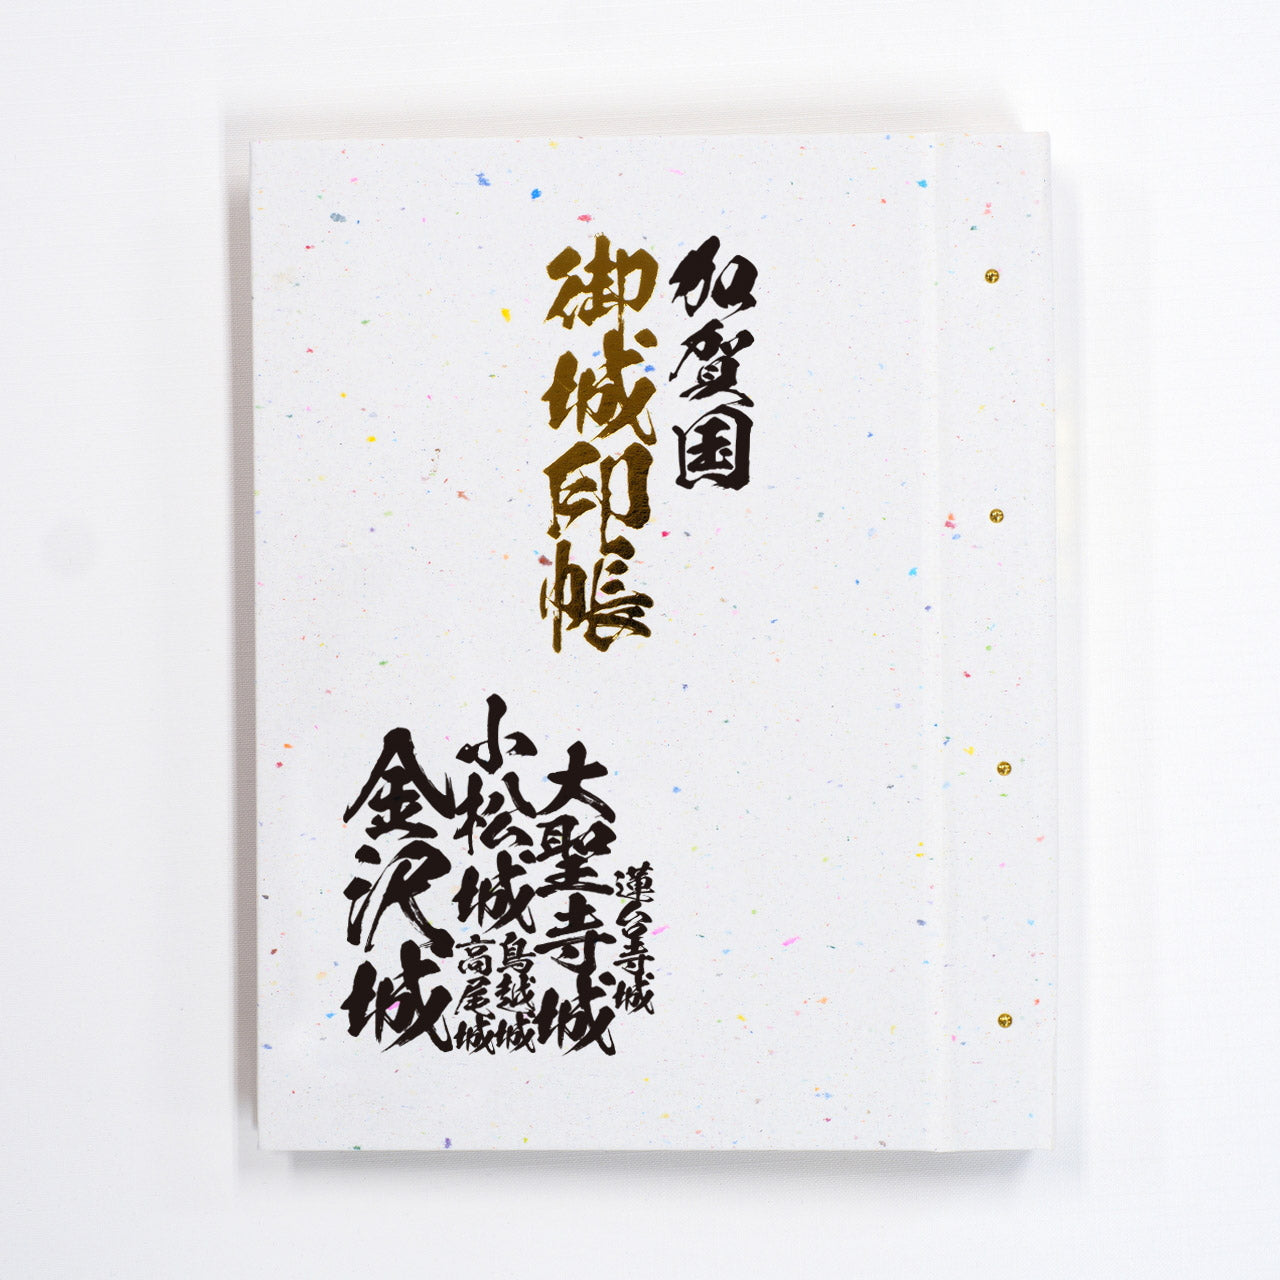 加賀国
御城印帳
蓮台寺城
大聖寺城
鳥越城
小松城
高尾城
金沢城